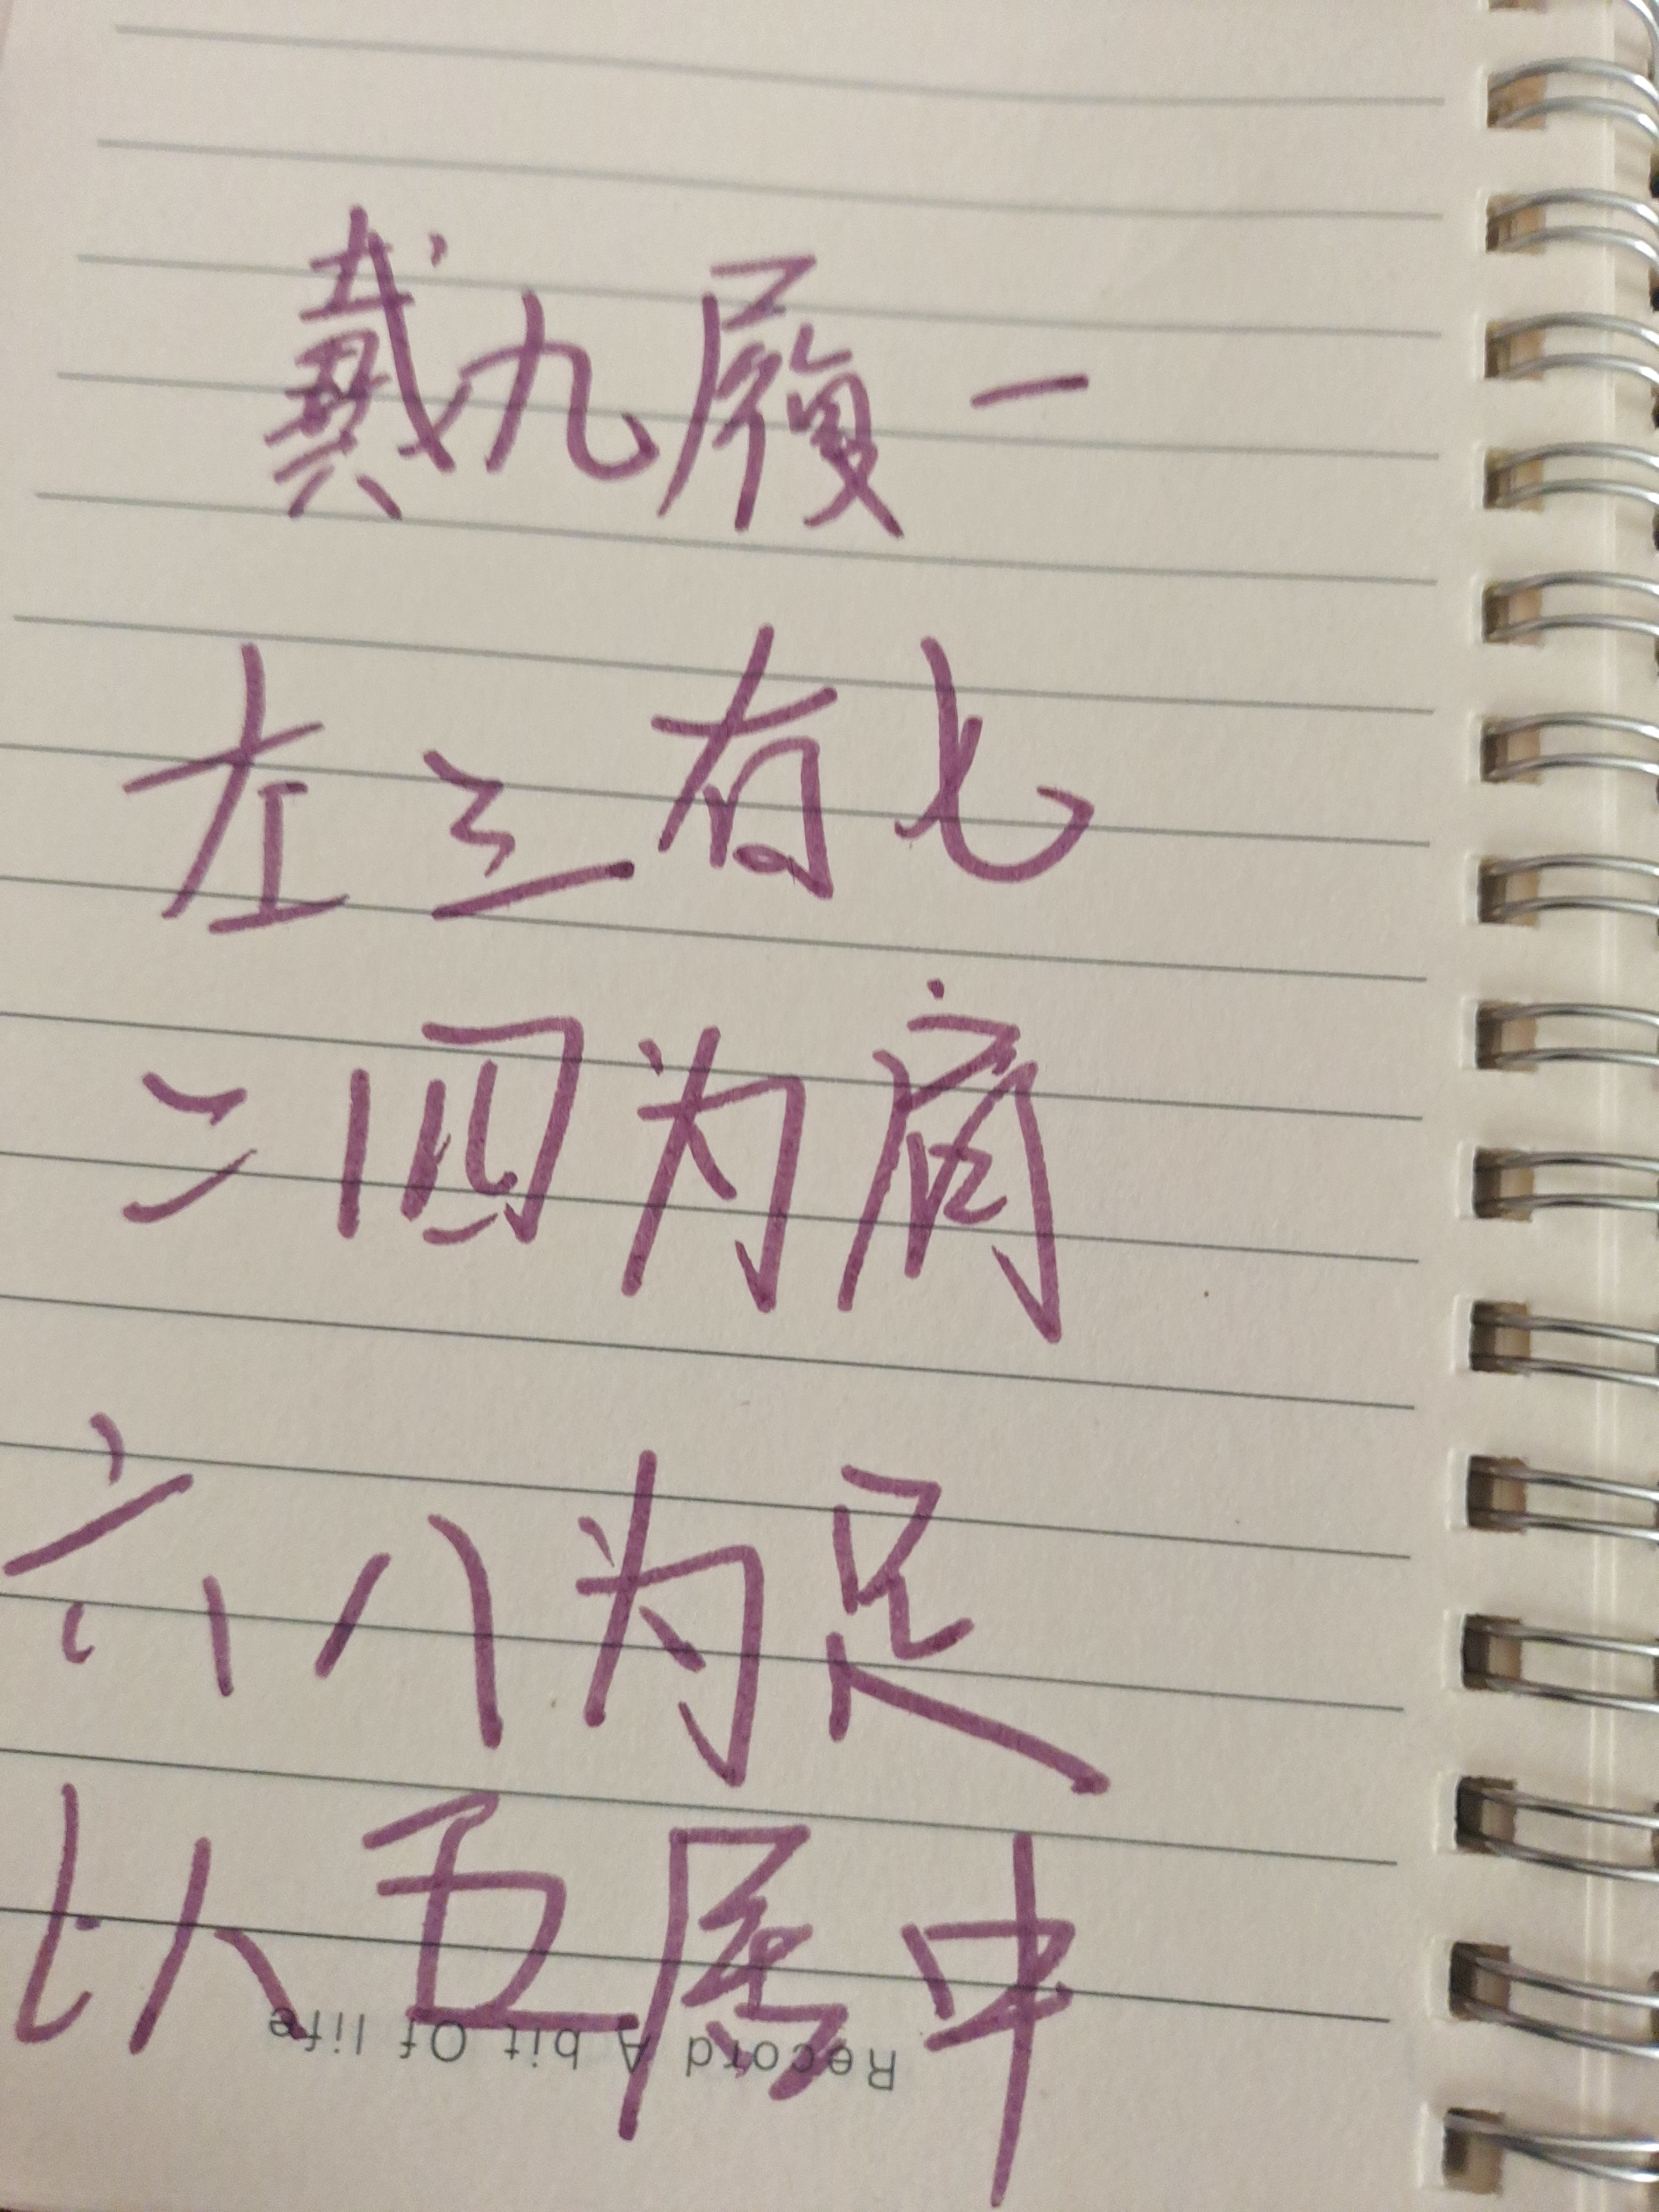 戴九履一
左三有七
二四为肩
六八为足
以五居中
Record A bit Of life